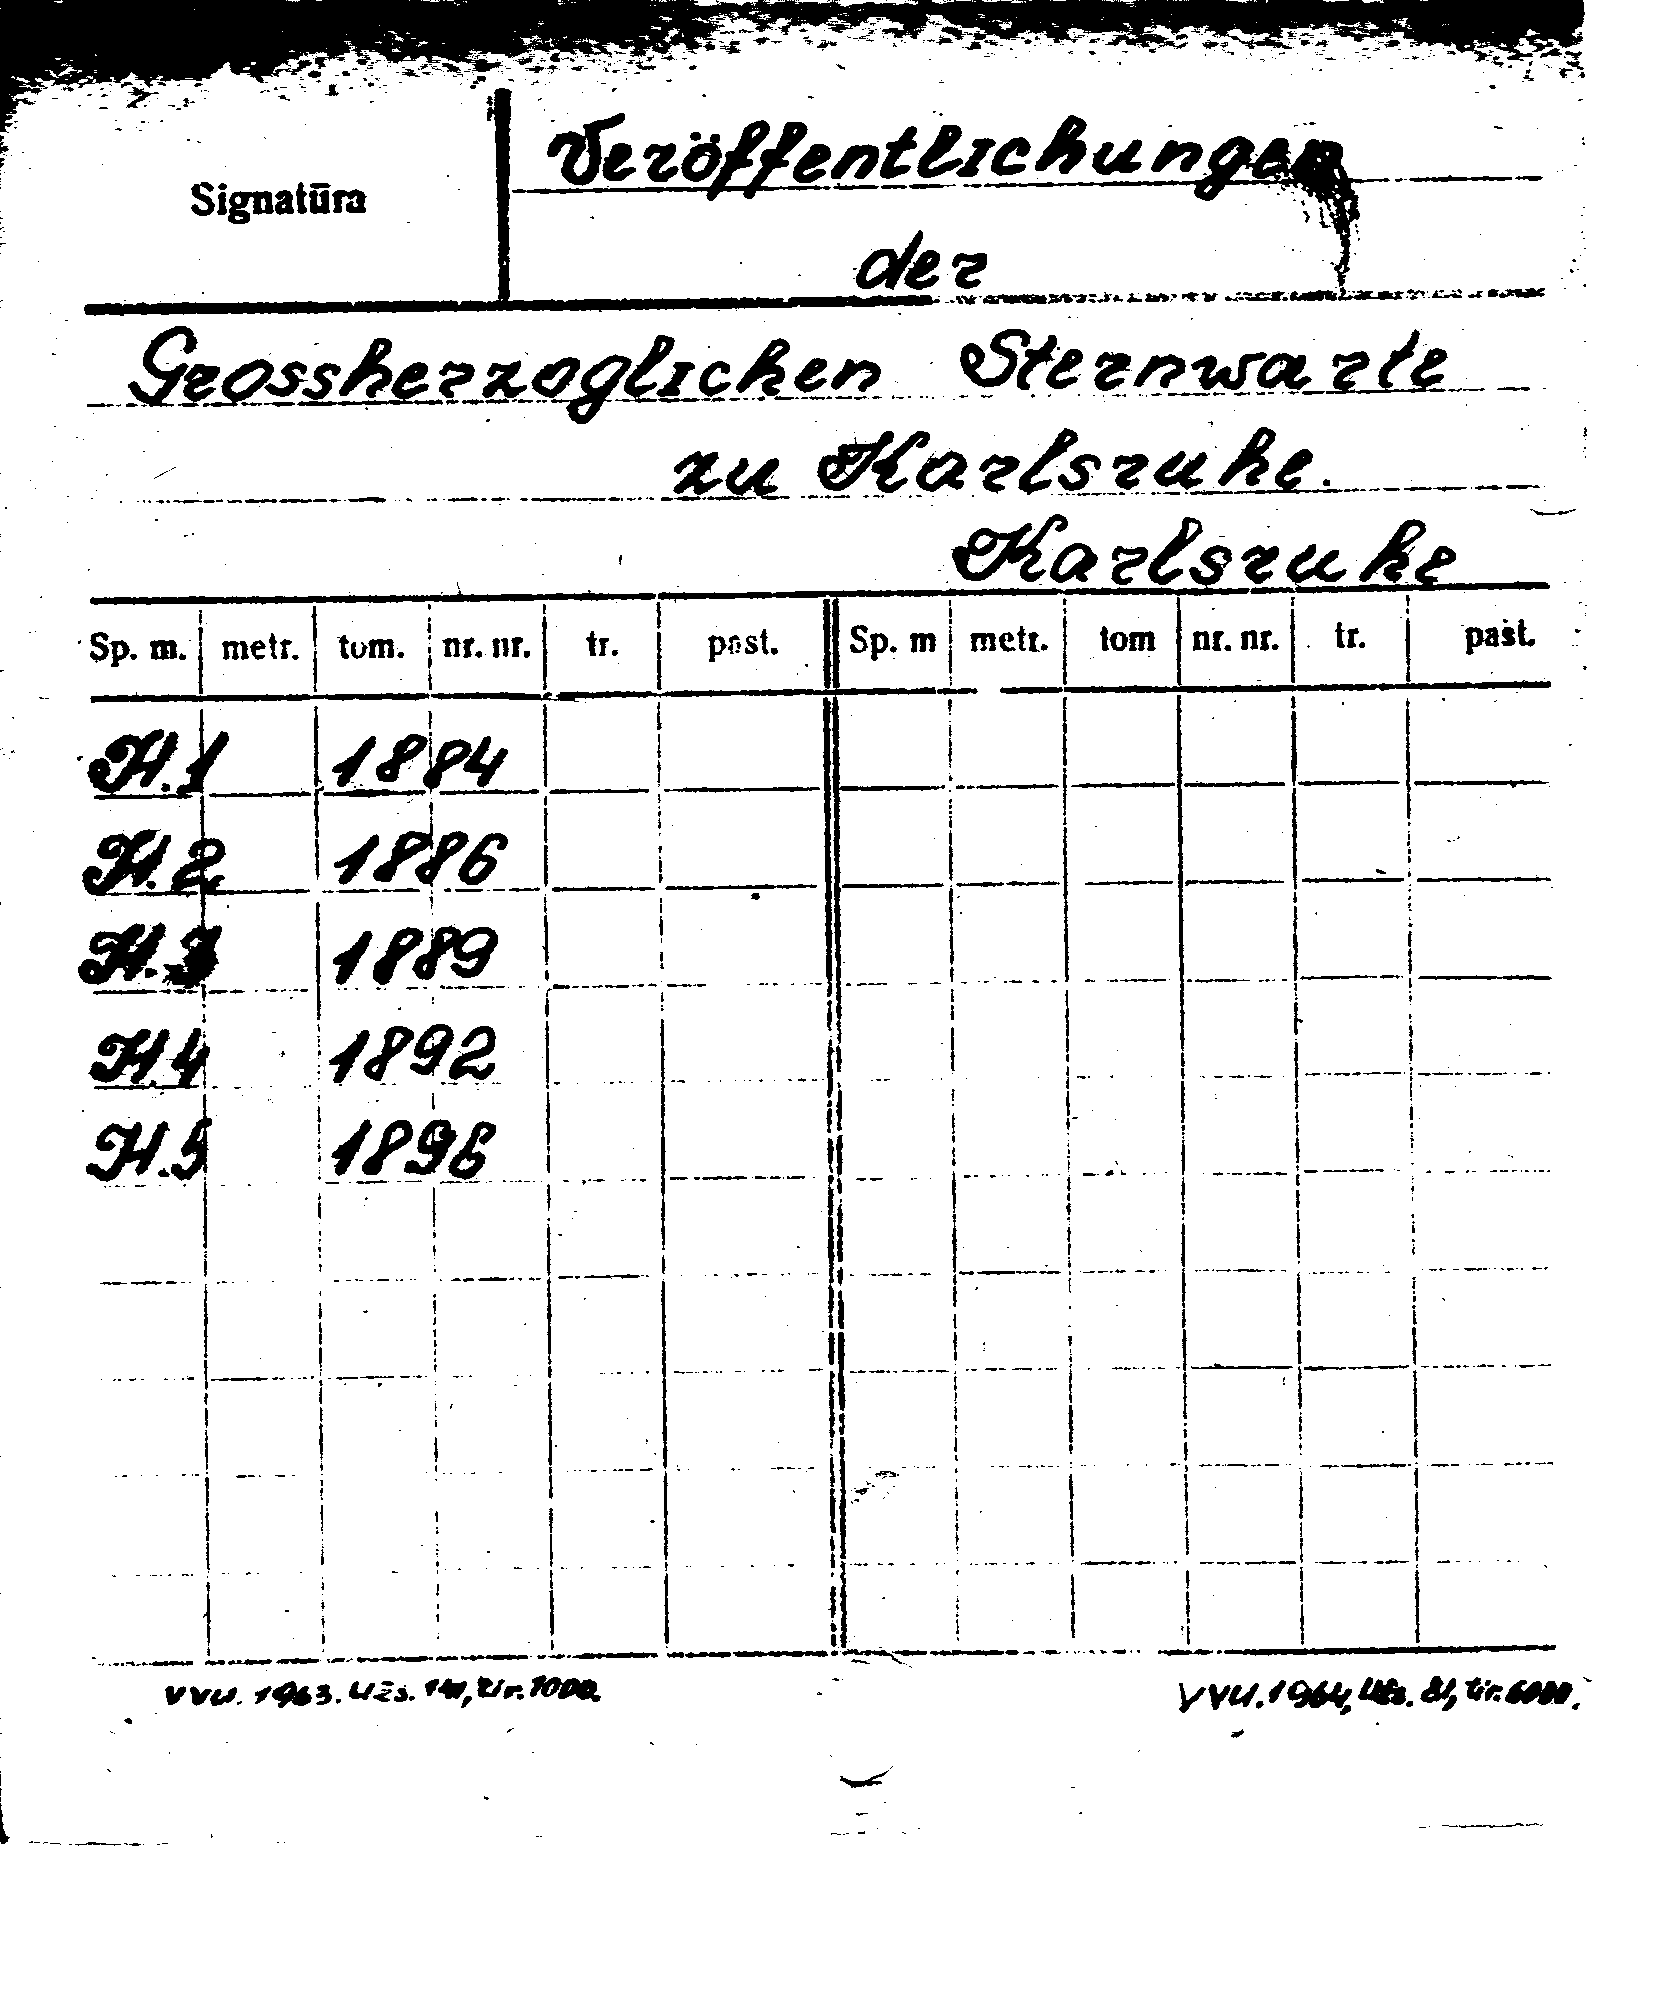 Veröffentlichungen
Signatūra
der
Grossherzoglichen Sternwarte
zu Karlsruhe.
Karlsruhe
Sp. m. metr. tom. nr. nr. tr. past. Sp. m metr. tom nr. nr. tr. past.
H.1 1884
H.2 1886
H.3 1889
H.4 1892
H.5 1896
VVU. 1963. Užs. tir. 1000. VVU. 1964, Užs. 81, tir. 6000.